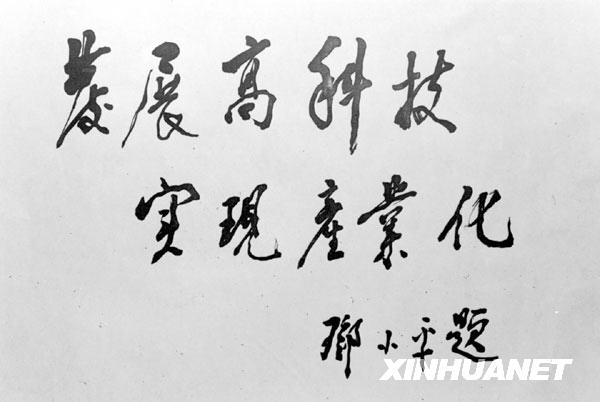 發展高科技
实現產業化
鄧小平题
XINHUANET